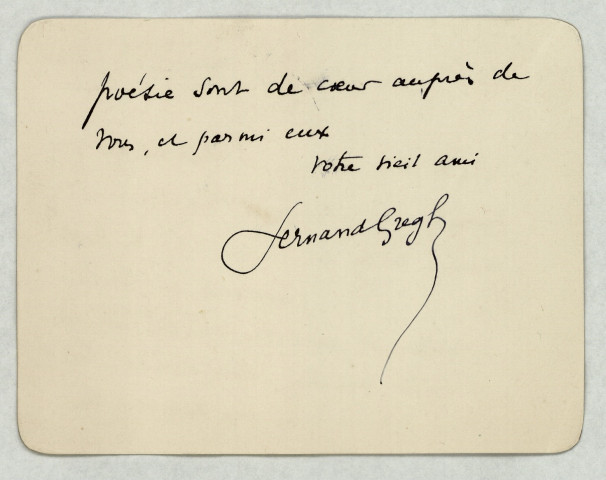 poésie sont de cœur auprès de
vous, et parmi eux
votre vieil ami
Fernand Gregh